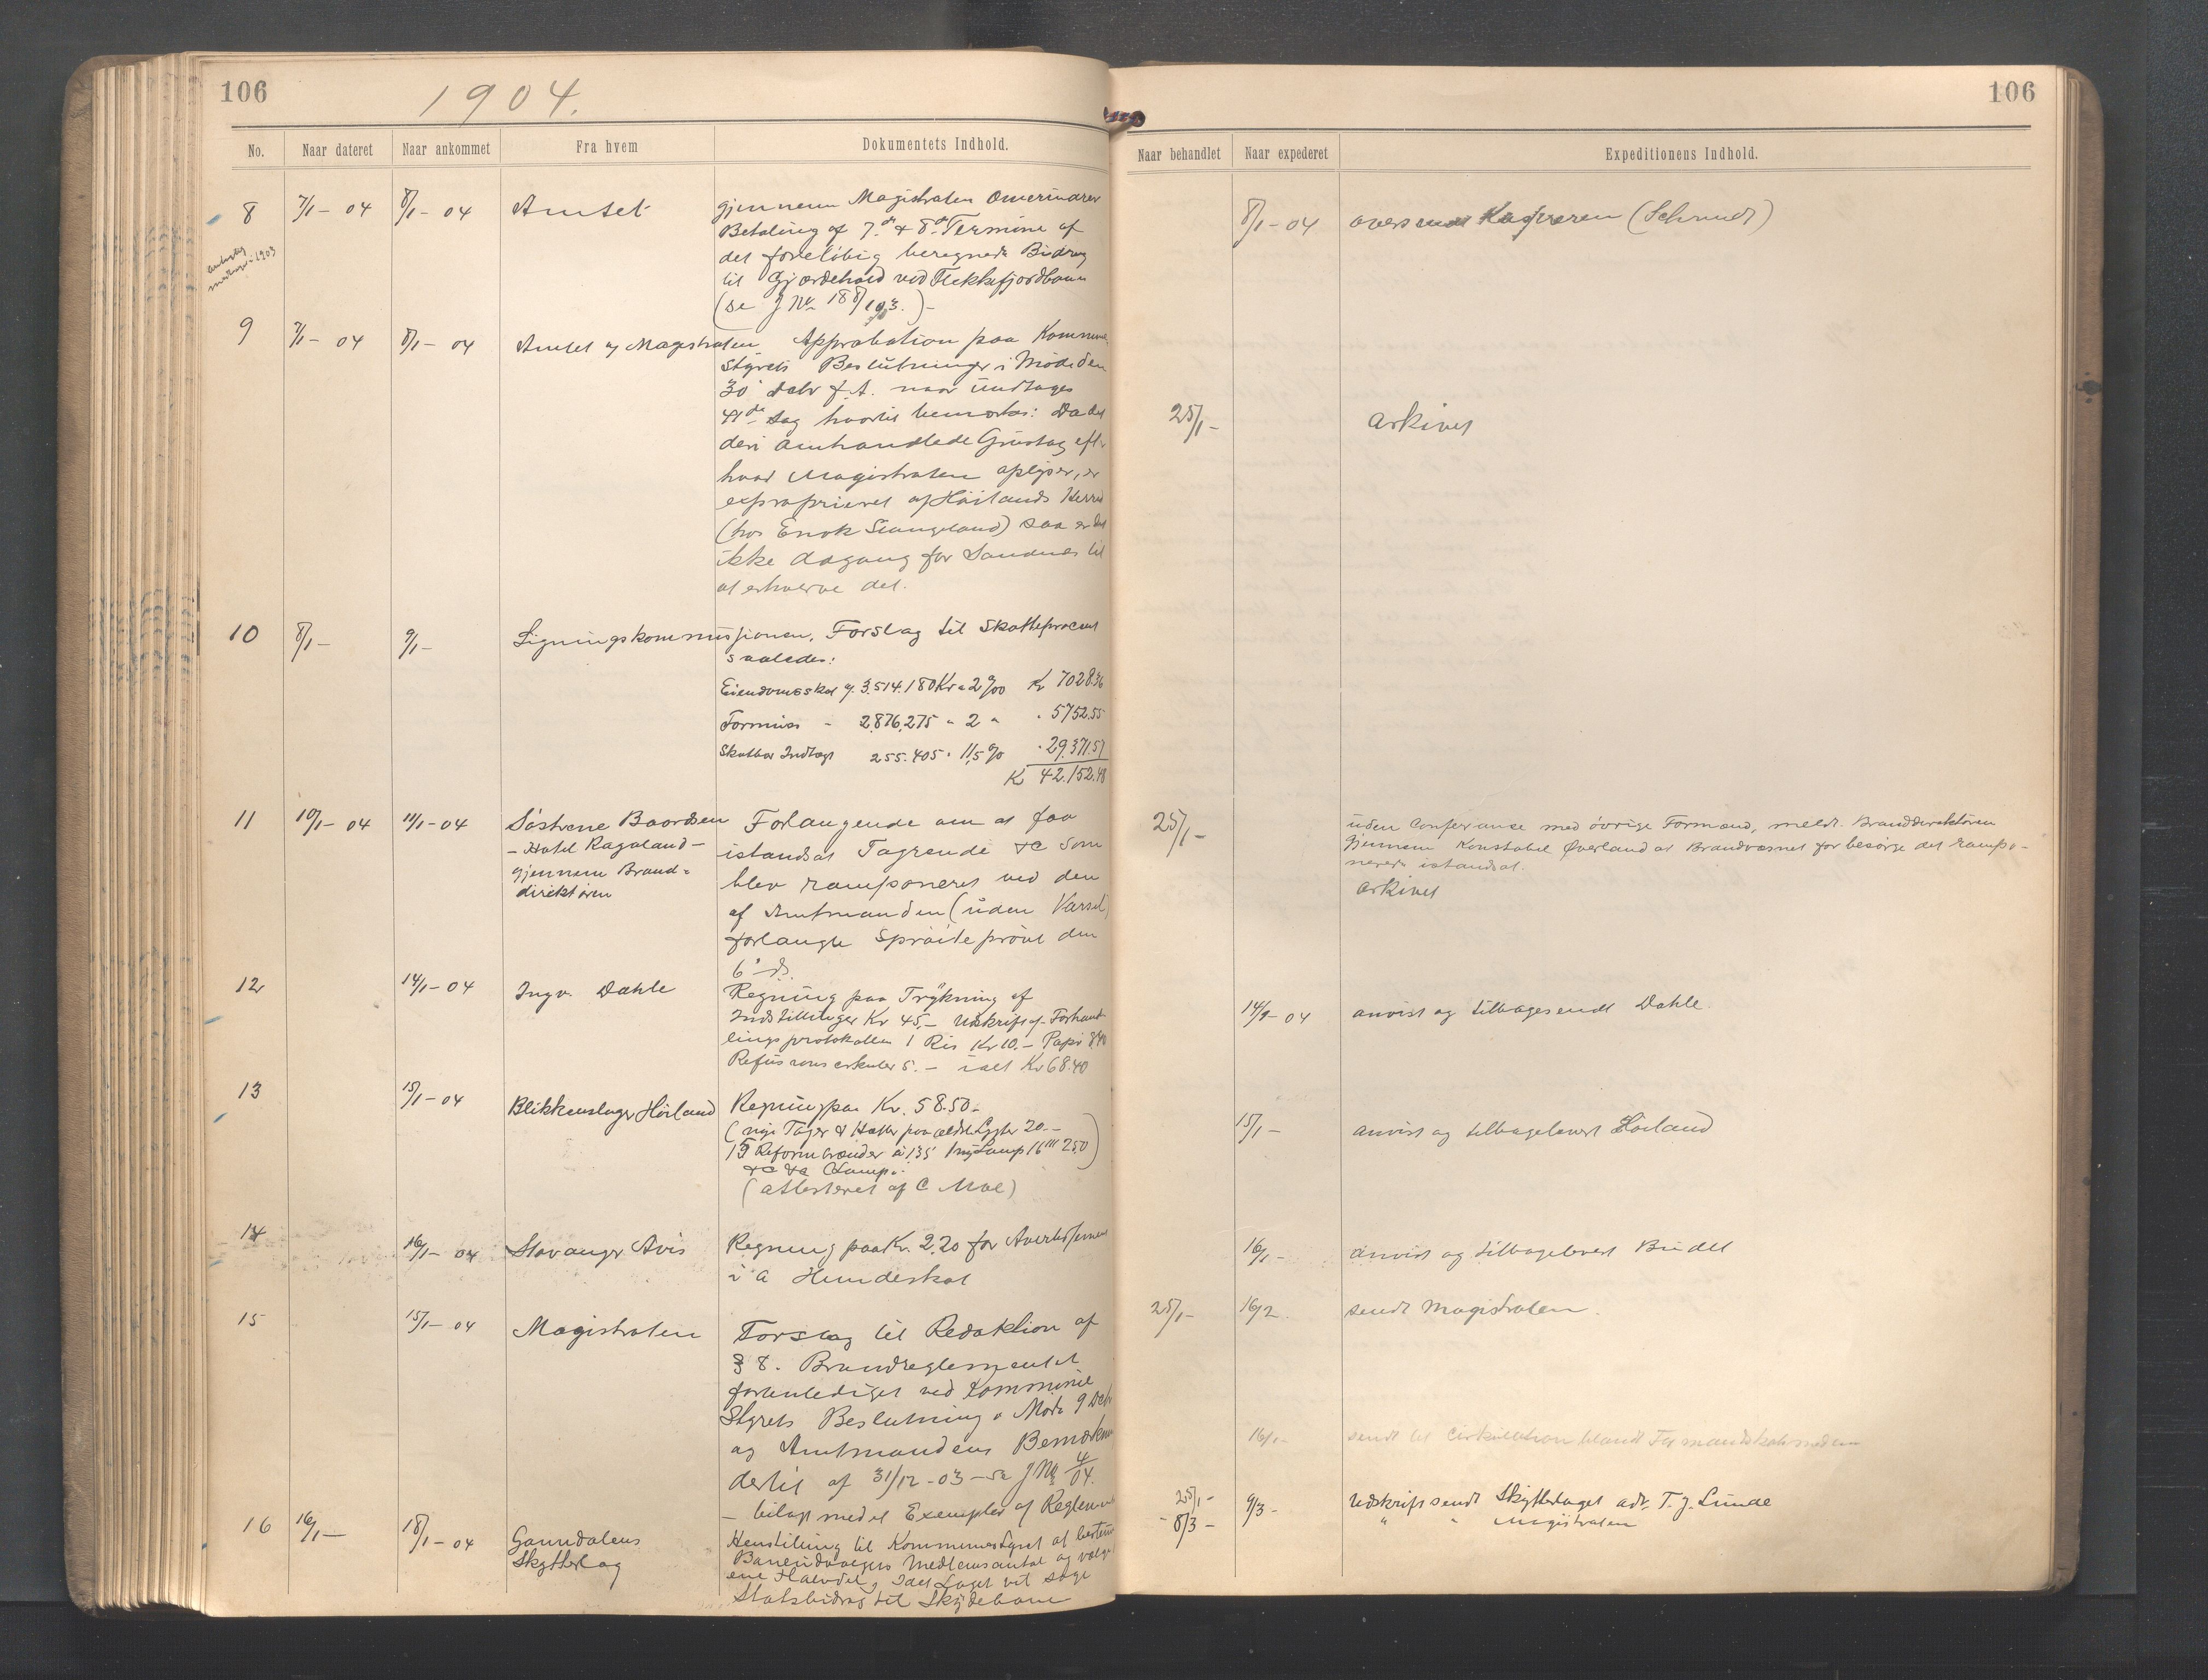 106
1904.
No. Naar dateret Naar ankommet Fra hvem Dokumentets Indhold.
8 7/1 - 04 8/1 - 04 Amtet gjennem Magistraten Omerindrer
Betaling af 7.de & 8.de Termine af
det foreløbig beregnede Bidrag
til Gjærdehold ved Flekkefjordbanen
(se J No 188/1903.) -
9 7/1 - 04 8/1 - 04 Amtet og Magistraten Approbation paa Kommune
Styrets Beslutninger i Møde den
30' Decbr f. A. naar undtages
41de Sag hvortil bemærkes: Da det
deri omhandlede Grustag efter
hvad Magistraten oplyser, er
exproprieret af Høilands Herred
(hos Enok Stangeland) saa er det
ikke Adgang for Sandnes til
at erhverve det.
10 8/1 - 9/1 - Ligningskommissjonen, Forslag til Skatteprocent
saaledes:
Eiendomsskat af 3.514.180 Kr a 2 0/00 Kr 7028.36
Formues - 2,876,275 " 2 " " 5752.55
Skatbar Indtægt 255.405 " 11,5 % " 29,371.57
Kr 42.152.48
11 10/1 - 04 11/1 - 04 Søstrene Baardsen Forlangende om at faa
- Hotel Rogaland - istandsat Tagrende &c Som
gjennem Brand- blev ramponeret ved den
direktøren af Amtmanden (uden Varsel)
forlangte Sprøiteprøve den
6' ds.
12 14/1 - 04 Ingv. Dahle Regning paa Trykning af
Indstillinger Kr 45,- Udskrift af Forhand-
lingsprotokollen 1 Ris Kr 10.- Papir 8.40
5.- ialt Kr 68.40
13 15/1 - 04 Blikkenslager Høiland Regning paa Kr. 58.50.-
(nye Tager & Hætter paa ældste Lygter 20.-
15 Reformbrænder a 1.35 1 ny Lampe 16''' 2.50)
&c &c Lampe
(attesteret af C Moe)
14 16/1 - 04 Stavanger Avis Regning paa Kr. 2.20 for Avertissement
i A Hundeskat
15 15/1 - 04 Magistraten Forslag til Redaktion af
§ 8. Brandreglementet
foranlediget ved Kommune
Styrets Beslutning i Møde 9 Decbr
og Amtmandens Bemærkning
dertil af 31/12 - 03 - se J No 4/04.
- bilagt med et Exemplar af Reglement
16 16/1 - 18/1 - 04 Ganndalens Henstilling til Kommunestyret at bestemme
Skytterlag Baneudvalgets Medlemsantal og vælge
ene Halvdel, Idet Laget vil søge
Statsbidrag til Skydebane
106
Naar behandlet Naar expederet Expeditionens Indhold.
8/1 - 04 oversendt Kasereren (Schmidt)
25/1 - Arkivet
25/1 - uden Conferanse med øvrige Formænd, meldt Branddirektøren
gjennem Konstabel Øverland at Brandvæsnet får besørge det rampo-
nerede istandsat.
Arkivet
14/1 - 04 anvist og tilbagesendt Dahle.
15/1 - anvist og tilbagelevert Høiland
16/1 - anvist og tilbagelevert Budet
25/1 - 16/2. sendt Magistraten.
16/1 - sendt til Cirkulation blandt Formandskabsmedlem
25/1 -
- 8/3 - 9/3 - Udskrift sendt Skytterlaget adr. T. J. Lunde
" " Magistraten